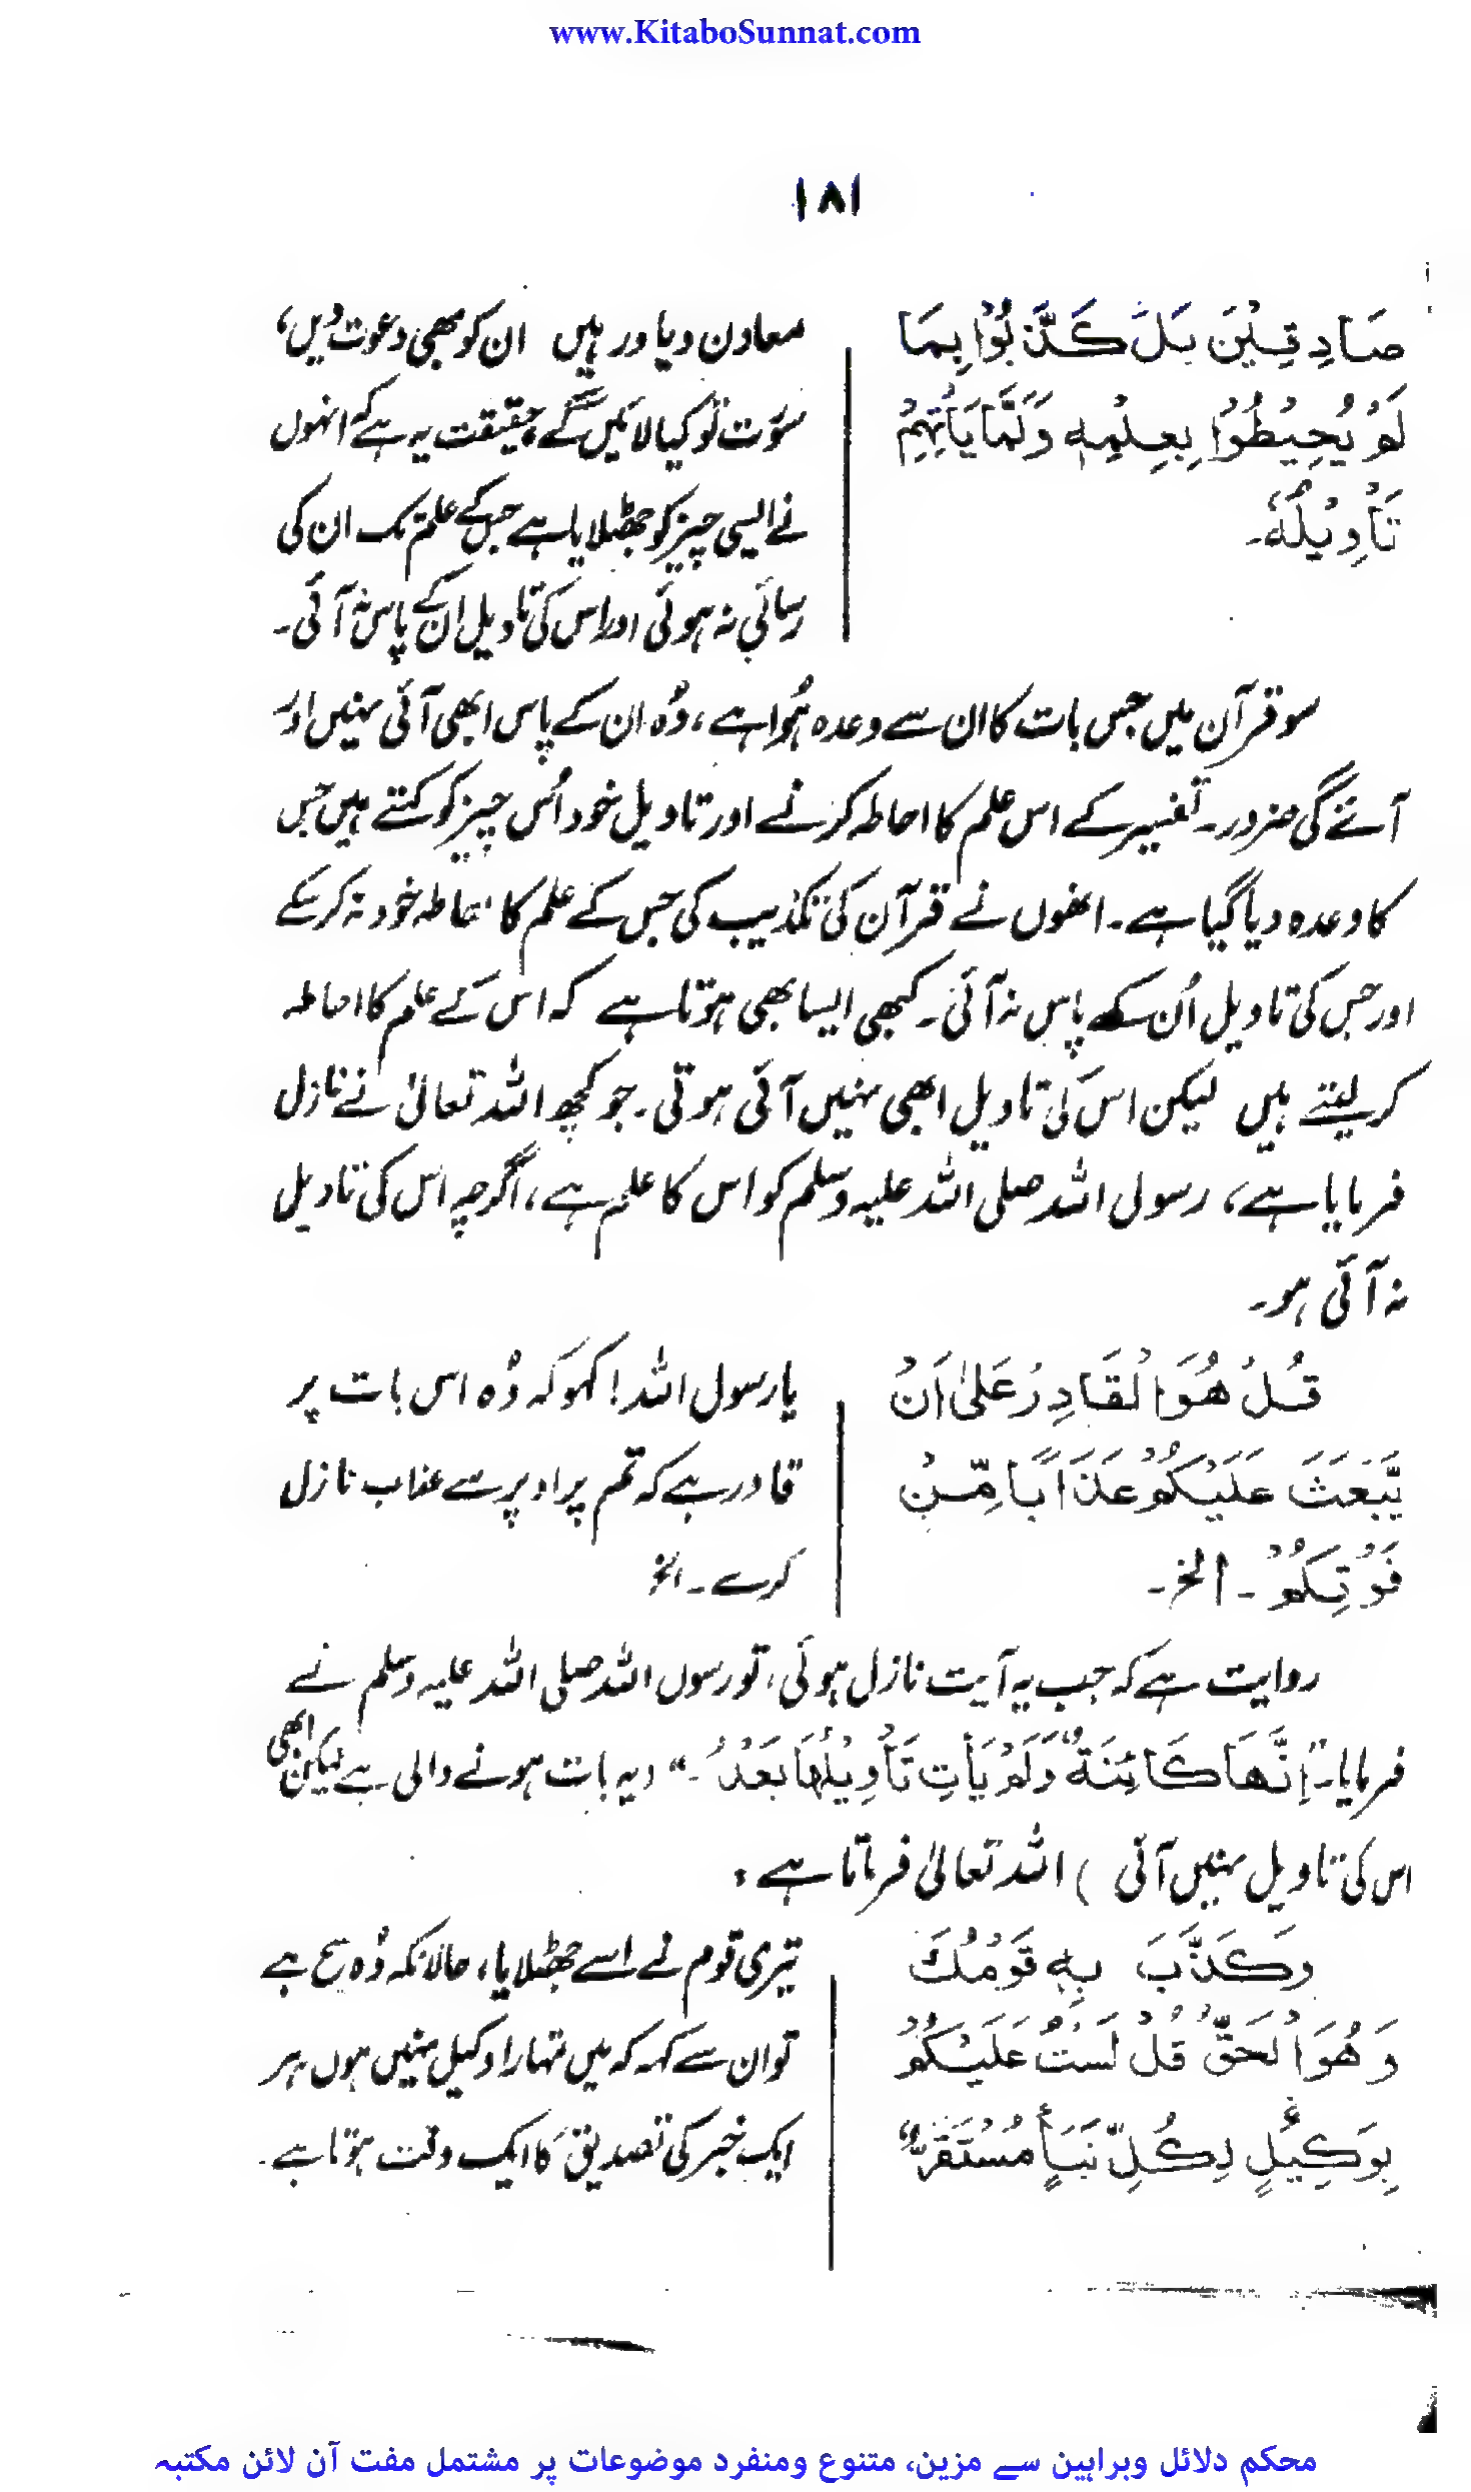 www.KitaboSunnat.com
۱۸۱
صَادِقِيْنَ بَلْ كَذَّبُوْا بِمَا
لَمْ يُحِيْطُوْا بِعِلْمِهٖ وَلَمَّا يَأْتِهِمْ
تَأْوِيْلُهٗ۔
معاون ویاور ہیں ان کو بھی دعوت دیں،
سوَرت تو کیا لائیں گے، حقیقت یہ ہے کہ انہوں
نے ایسی چیز کو جھٹلایا ہے جس کے علم تک ان کی
رسائی نہ ہوئی اور اس کی تاویل ان کے پاس نہ آئی۔
سو قرآن میں جس بات کا ان سے وعدہ ہُوا ہے، وُہ ان کے پاس ابھی آئی نہیں اور
آئے گی ضرور۔ تفسیر کے اس علم کا احاطہ کرنے اور تاویل خود اُس چیز کو کہتے ہیں جس
کا وعدہ دیا گیا ہے۔ انھوں نے قرآن کی تکذیب کی جس کے علم کا احاطہ خود نہ کر سکے
اور جس کی تاویل اُن کے پاس نہ آئی۔ کبھی ایسا بھی ہوتا ہے کہ اس کے علم کا احاطہ
کر لیتے ہیں لیکن اس کی تاویل ابھی نہیں آئی ہوتی۔ جو کچھ اللہ تعالیٰ نے نازل
فرمایا ہے، رسول اللہ صلی اللہ علیہ وسلم کو اس کا علم ہے، اگرچہ اس کی تاویل
نہ آئی ہو۔
قُلْ هُوَ الْقَادِرُ عَلىٰ اَنْ
يَّبْعَثَ عَلَيْكُمْ عَذَابًا مِّنْ
فَوْقِكُمْ۔ الخ۔
یا رسول اللہ! کہو کہ وُہ اس بات پر
قادر ہے کہ تم پر اوپر سے عذاب نازل
کرے۔ الخ
روایت ہے کہ جب یہ آیت نازل ہوئی، تو رسول اللہ صلی اللہ علیہ وسلم نے
فرمایا۔ "اِنَّهَا كَائِنَةٌ وَلَمْ يَأْتِ تَأْوِيْلُهَا بَعْدُ۔" (یہ بات ہونے والی ہے لیکن ابھی
اس کی تاویل نہیں آئی ) اللہ تعالیٰ فرماتا ہے،
وَكَذَّبَ بِهٖ قَوْمُكَ
وَهُوَ الْحَقُّ قُلْ لَسْتُ عَلَيْكُمْ
بِوَكِيْلٍ لِكُلِّ نَبَأٍ مُسْتَقَرٌّ
تیری قوم نے اسے جھٹلایا، حالانکہ وُہ سچ ہے
تو ان سے کہہ کہ میں تمہارا وکیل نہیں ہوں ہر
ایک خبر کی تصدیق کا ایک وقت ہوتا ہے۔
محکم دلائل وبراہین سے مزین، متنوع ومنفرد موضوعات پر مشتمل مفت آن لائن مکتبہ